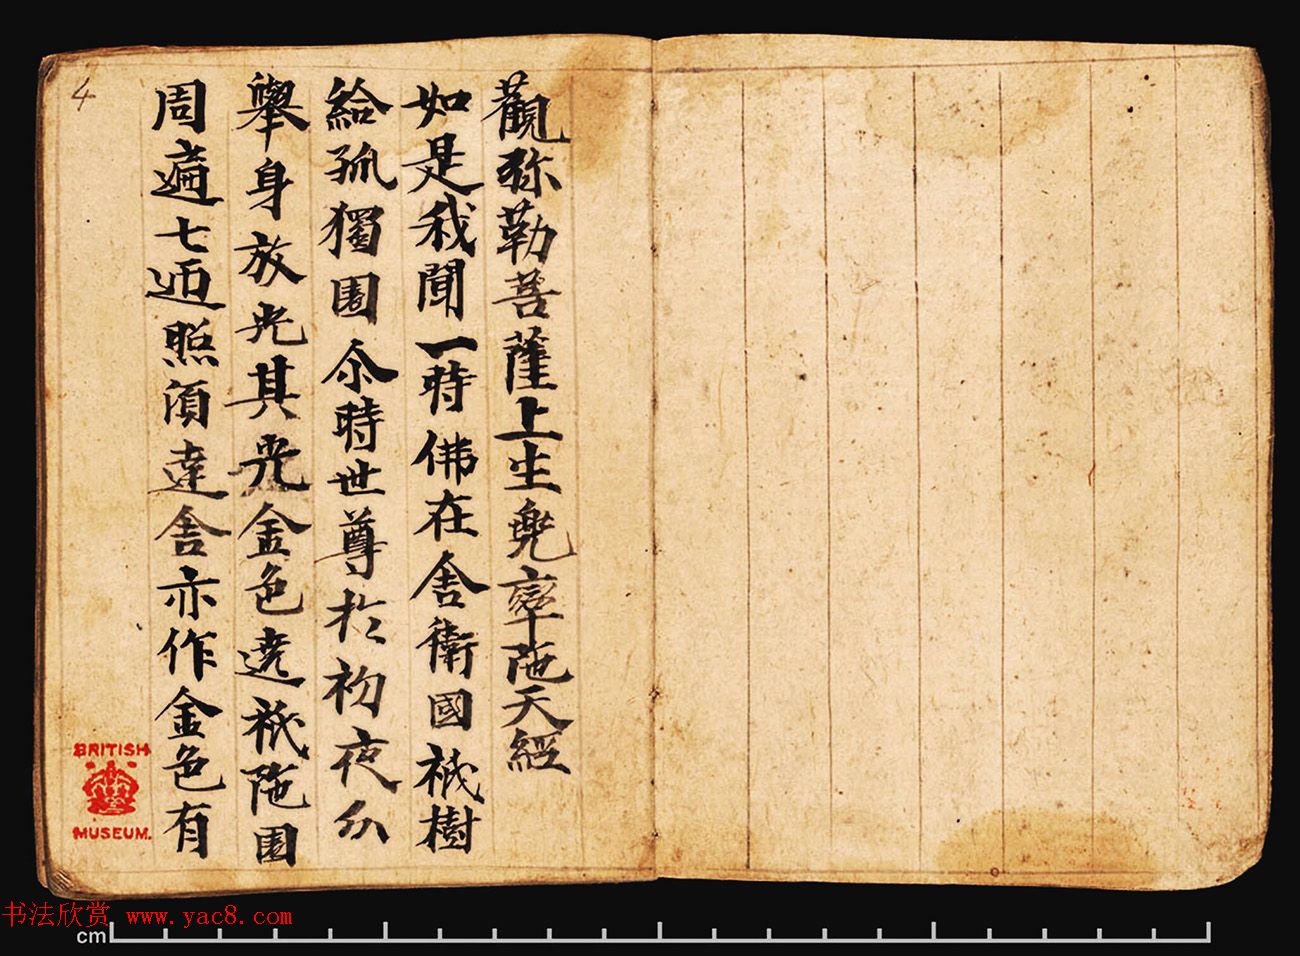 觀弥勒菩薩上生兜率陁天經
如是我聞一時佛在舍衛國祇樹
給孤獨園尒時世尊於初夜分
舉身放光其光金色遶祇陁園
周遍七迊照湏達舍亦作金色有
4
BRITISH
MUSEUM.
书法欣赏 www.yac8.com
cm